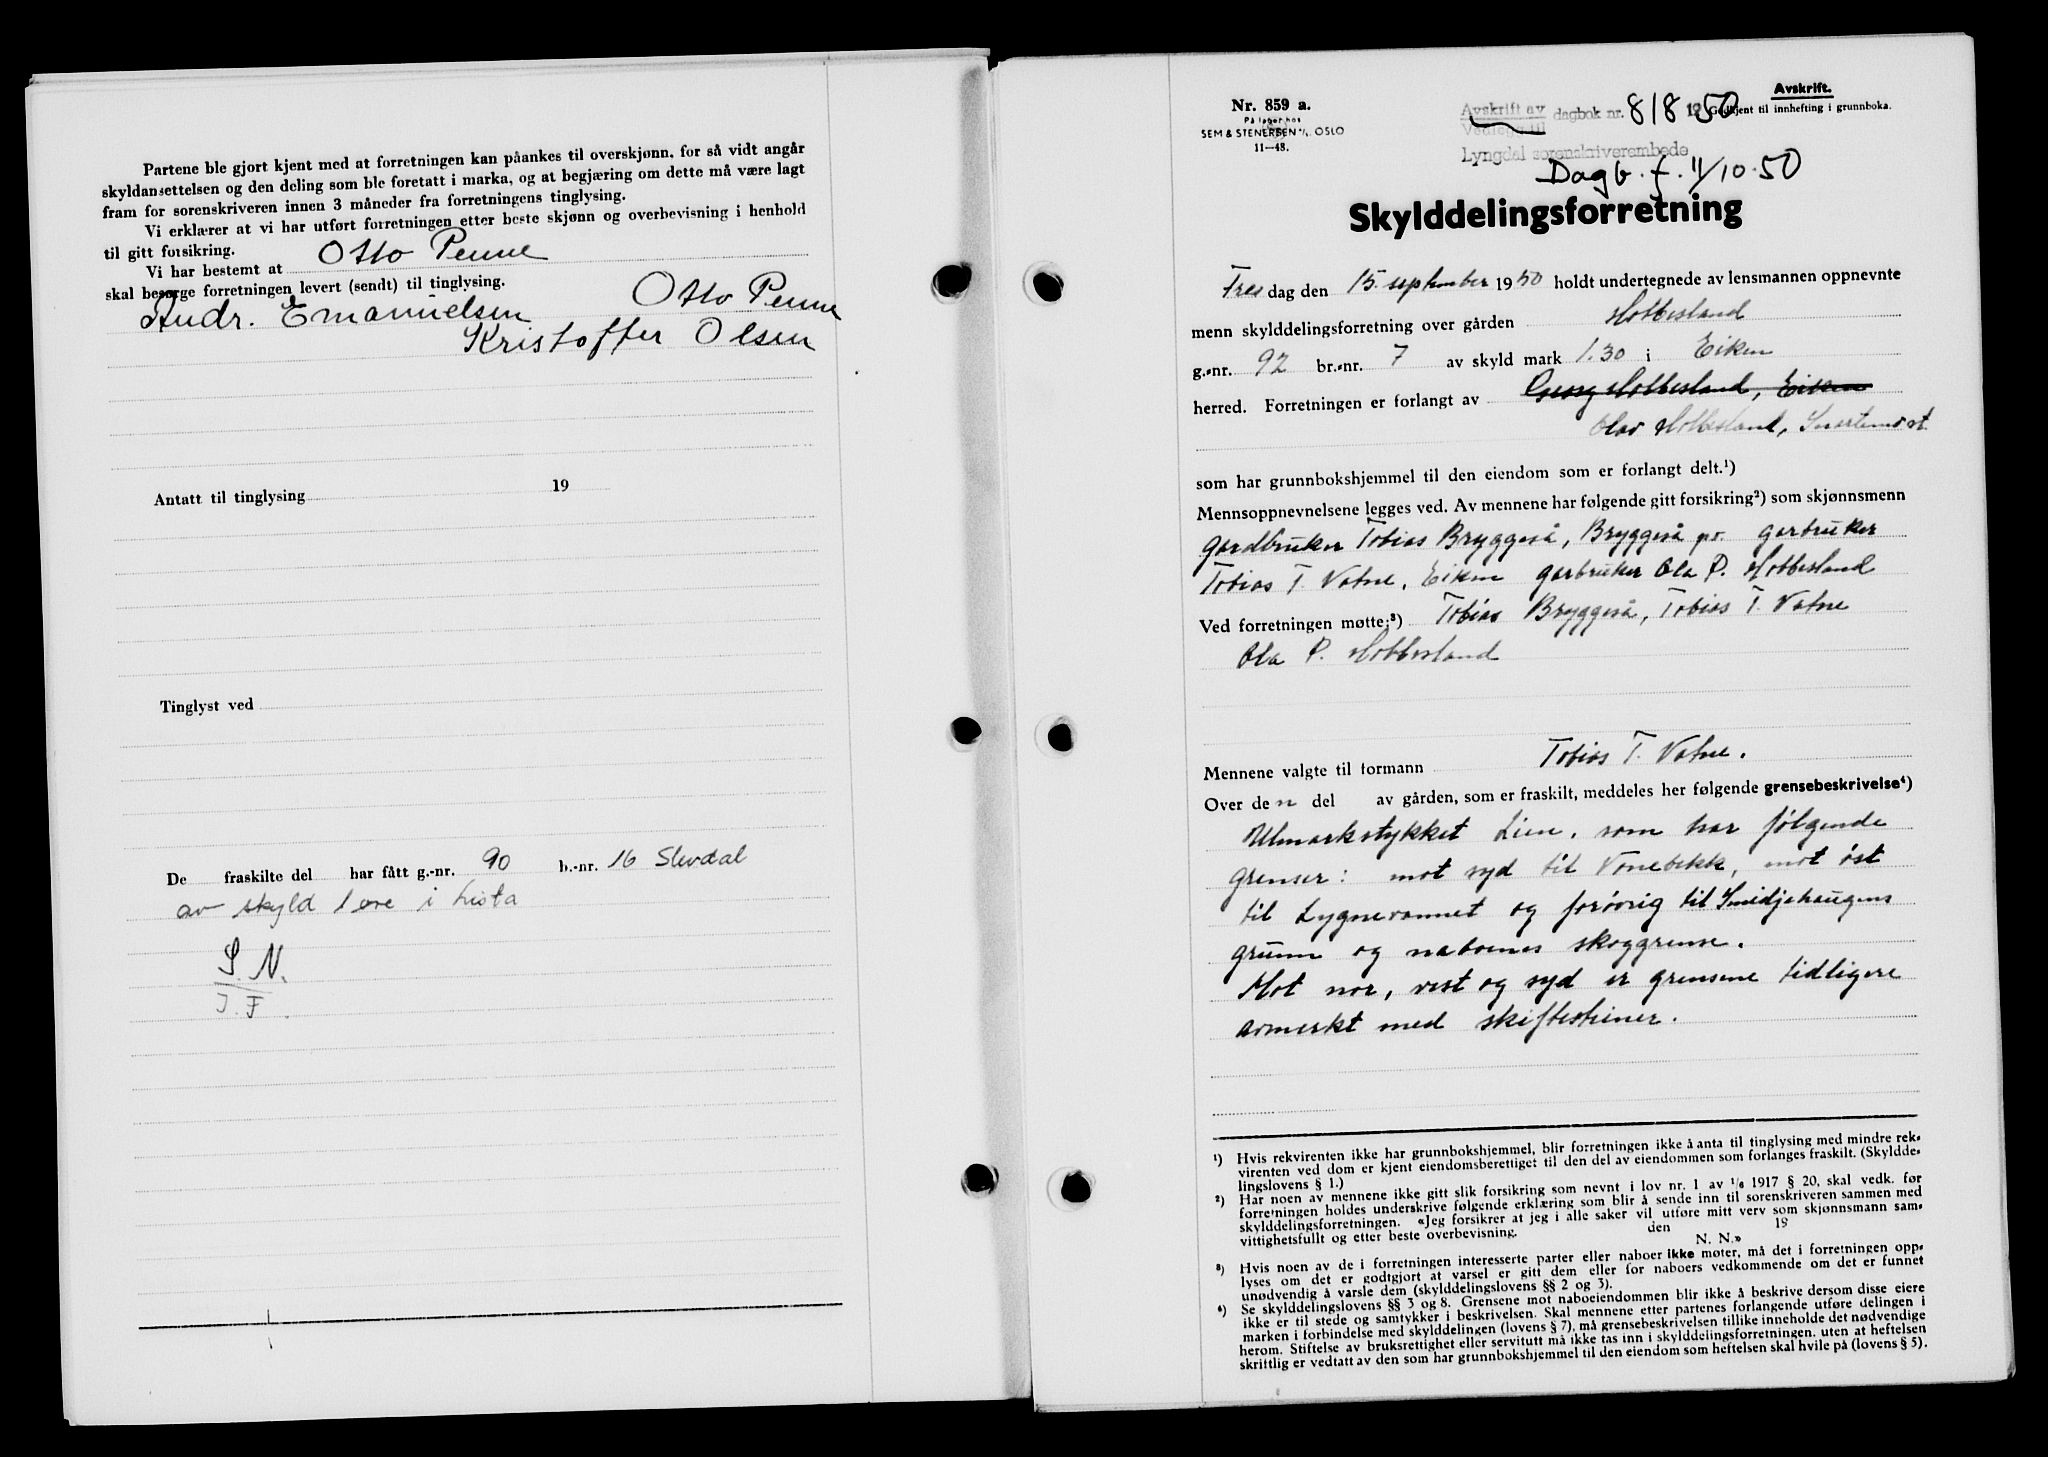 Partene ble gjort kjent med at forretningen kan påankes til overskjønn, for så vidt angår
skyldansettelsen og den deling som ble foretatt i marka, og at begjæring om dette må være lagt
fram for sorenskriveren innen 3 måneder fra forretningens tinglysing.
Vi erklærer at vi har utført forretningen etter beste skjønn og overbevisning i henhold
til gitt forsikring.
Vi har bestemt at Otto Penne
skal besørge forretningen levert (sendt) til tinglysing.
Andr. Emanuelsen Otto Penne
Kristoffer Olsen
Antatt til tinglysing 19
Tinglyst ved
De fraskilte del har fått g.-nr. 90 b.-nr. 16 Slevdal
av skyld 1 øre i Lista
S. N.
J. F.
Nr. 859 a.
På lager hos
SEM & STENERSEN A/S, OSLO
11—48.
Avskrift.
Godkjent til innhefting i grunnboka.
Avskrift av
Vedlegg til dagbok nr. 818 1950
Lyngdal sorenskriverembede
Dagb. f. 11/10.50
Skylddelingsforretning
Fredag den 15. september 1950 holdt undertegnede av lensmannen oppnevnte
menn skylddelingsforretning over gården Hobbesland
g.-nr. 92 br.-nr. 7 av skyld mark 1.30 i Eiken
herred. Forretningen er forlangt av Georg Hobbesland, Eiken
Olav Hobbesland, Snartemo st.
som har grunnbokshjemmel til den eiendom som er forlangt delt.¹)
Mennsoppnevnelsene legges ved. Av mennene har følgende gitt forsikring²) som skjønnsmenn
gardbruker Tobias Bryggeså, Bryggeså pr. garbruker
Tobias T. Vatne, Eiken garbruker Ola P. Hobbesland
Ved forretningen møtte:³) Tobias Bryggeså, Tobias T. Vatne
Ola P. Hobbesland
Mennene valgte til formann Tobias T. Vatne.
Over den del av gården, som er fraskilt, meddeles her følgende grensebeskrivelse⁴)
Utmarkstykket Lien, som har følgende
grenser: mot syd til Vonebekk, mot øst
til Lygnevannet og forøvrig til Smidjehaugens
grunn og naboenes skoggrense.
Mot nor, vest og syd er grensene tidligere
avmerkt med skiftesteiner.
¹) Hvis rekvirenten ikke har grunnbokshjemmel, blir forretningen ikke å anta til tinglysing med mindre rek-
virenten ved dom er kjent eiendomsberettiget til den del av eiendommen som forlanges fraskilt. (Skyldde-
lingslovens § 1.)
²) Har noen av mennene ikke gitt slik forsikring som nevnt i lov nr. 1 av 1/6 1917 § 20, skal vedk. før
forretningen holdes underskrive følgende erklæring som blir å sende inn til sorenskriveren sammen med
skylddelingsforretningen. «Jeg forsikrer at jeg i alle saker vil utføre mitt verv som skjønnsmann sam-
vittighetsfullt og etter beste overbevisning. den 19
N. N.»
³) Hvis noen av de i forretningen interesserte parter eller naboer ikke møter, må det i forretningen opp-
lyses om det er godtgjort at varsel er gitt dem eller for naboers vedkommende om det er funnet
unødvendig å varsle dem (skylddelingslovens §§ 2 og 3).
⁴) Se skylddelingslovens §§ 3 og 8. Grensene mot naboeiendommen blir ikke å beskrive dersom disse eiere
ikke er til stede og samtykker i beskrivelsen. Skal mennene etter partenes forlangende utføre delingen i
marken i forbindelse med skylddelingen (lovens § 7), må grensebeskrivelsen tillike inneholde det nødvendige
herom. Stiftelse av bruksrettighet eller servitutt må ikke tas inn i skylddelingsforretningen, uten at heftelsen
skriftlig er vedtatt av den som har grunnbokshjemmel til den eiendom som heftelsen skal hvile på (lovens § 5).